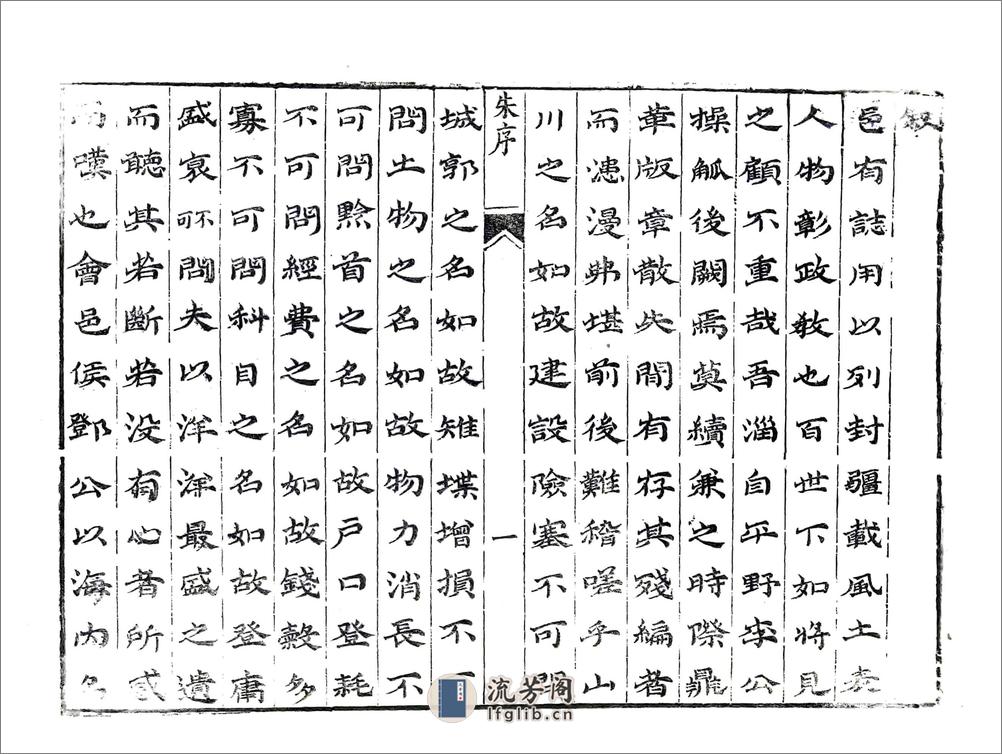 叙
邑有誌用以列封疆載風土表
人物彰政教也百世下如將見
之顧不重哉吾淄自平野李公
操觚後闕焉莫續兼之時際鼎
革版章散失間有存其殘編者
而漶漫弗堪前後難稽嗟乎山
川之名如故建設險塞不可問
朱序
一
城郭之名如故雉堞增損不可
問土物之名如故物力消長不
可問黔首之名如故戶口登耗
不可問經費之名如故錢穀多
寡不可問科目之名如故登庸
盛衰不可問夫以洋洋最盛之遺
而聽其若斷若没有心者所感
而嘆也會邑侯鄧公以海内名
流芳阁
lfglib.cn